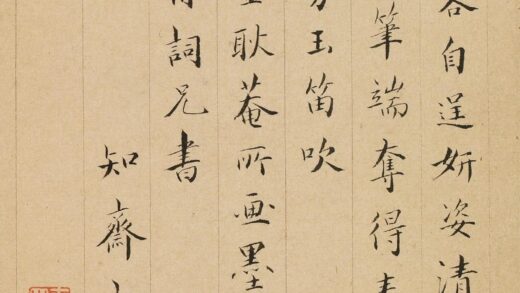 自逞妍姿清
筆端奪得春
玉笛吹
耿菴所画墨
詞兄書
知齋